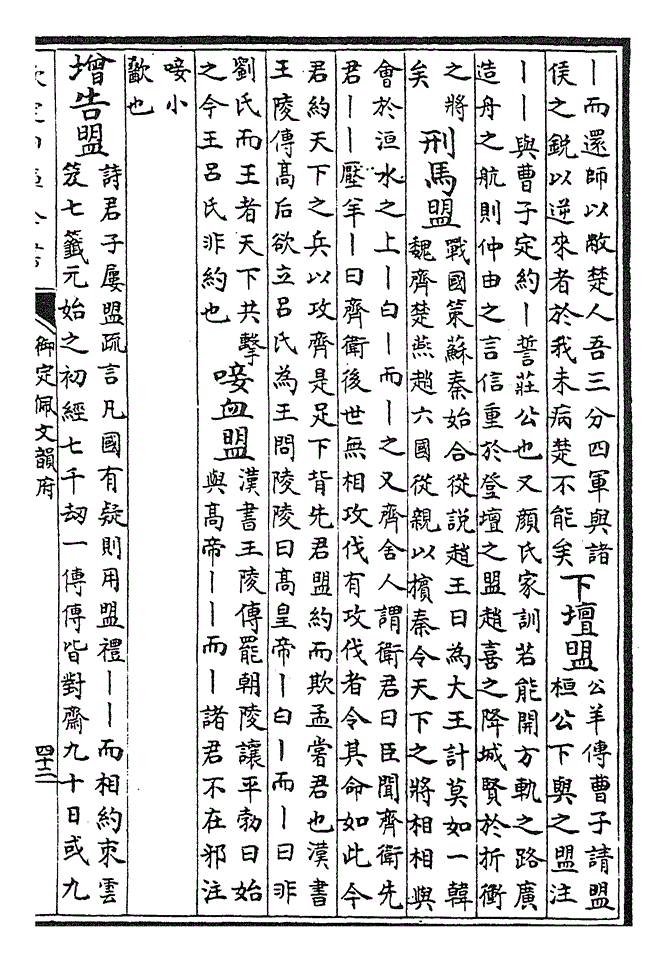 丨而還師以敝楚人吾三分四軍與諸
侯之銳以逆來者於我未病楚不能矣
下壇盟
公羊傳曹子請盟
桓公下與之盟注
丨丨與曹子定約丨誓莊公也又顔氏家訓若能開方軌之路廣
造舟之航則仲由之言信重於登壇之盟趙喜之降城賢於折衝
之將
矣
刑馬盟
戰國策蘇秦始合從說趙王曰為大王計莫如一韓
魏齊楚燕趙六國從親以擯秦令天下之將相相與
會於洹水之上丨白丨而丨之又齊舍人謂衛君曰臣聞齊衛先
君丨丨壓羊丨曰齊衛後世無相攻伐有攻伐者令其命如此今
君約天下之兵以攻齊是足下背先君盟約而欺孟嘗君也漢書
王陵傳髙后欲立呂氏為王問陵陵曰髙皇帝丨白丨而丨曰非
劉氏而王者天下共擊
之今王呂氏非約也
唼血盟
漢書王陵傳罷朝陵讓平勃曰始
與髙帝丨丨而丨諸君不在邪注
唼小
歠也
增告盟
詩君子屢盟疏言凡國有疑則用盟禮丨丨而相約朿雲
笈七籤元始之初經七千刧一傳傳皆對齋九十日或九
御定佩文韻府
四十二